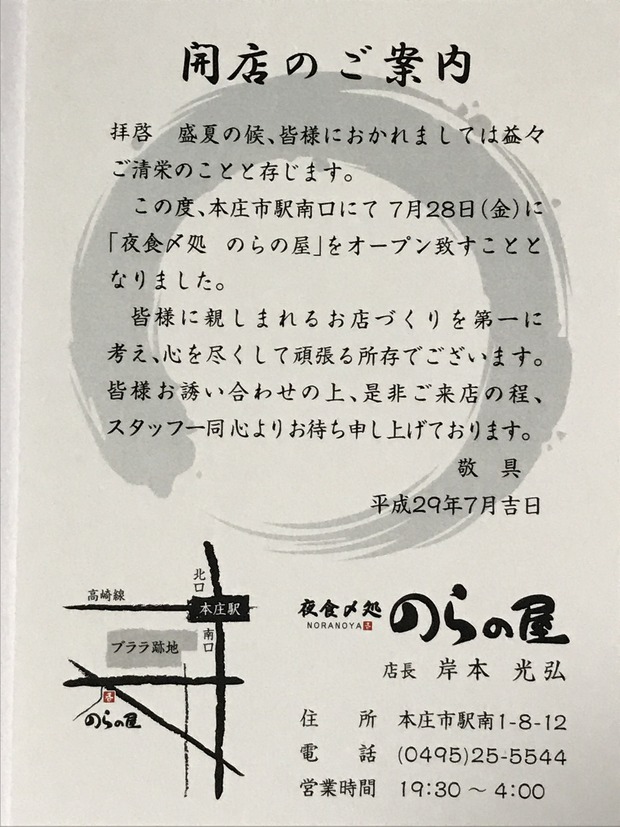 開店のご案内
拝啓　盛夏の候、皆様におかれましては益々
ご清栄のことと存じます。
この度、本庄市駅南口にて 7月28日（金）に
「夜食〆処　のらの屋」をオープン致すことと
なりました。
皆様に親しまれるお店づくりを第一に
考え、心を尽くして頑張る所存でございます。
皆様お誘い合わせの上、是非ご来店の程、
スタッフ一同心よりお待ち申し上げております。
敬　具
平成29年7月吉日
北口
高崎線
本庄駅
南口
プララ跡地
のらの屋
夜食〆処 のらの屋
NORANOYA
店長　岸本　光弘
住　所　本庄市駅南1-8-12
電　話　(0495)25-5544
営業時間　19:30 ～ 4:00